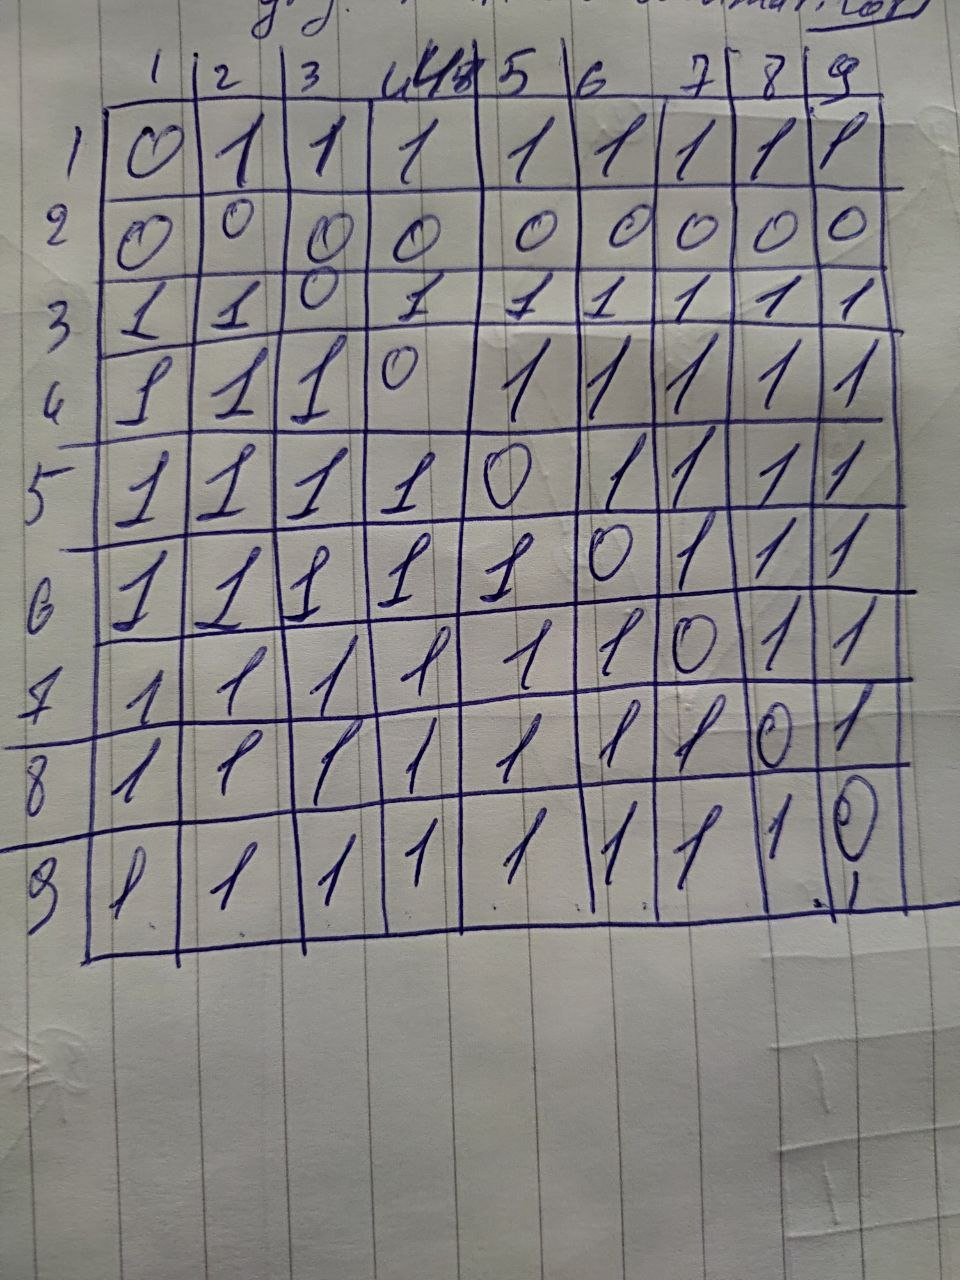 1 2 3 4 5 6 7 8 9
1 0 1 1 1 1 1 1 1 1
2 0 0 0 0 0 0 0 0 0
3 1 1 0 1 1 1 1 1 1
4 1 1 1 0 1 1 1 1 1
5 1 1 1 1 0 1 1 1 1
6 1 1 1 1 1 0 1 1 1
7 1 1 1 1 1 1 0 1 1
8 1 1 1 1 1 1 1 0 1
9 1 1 1 1 1 1 1 1 0